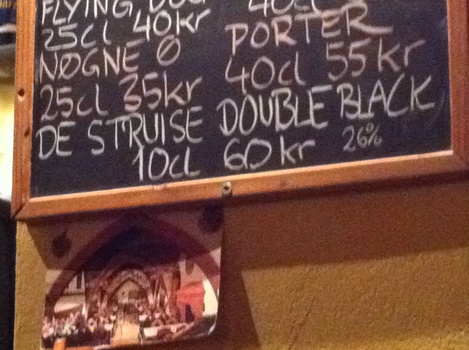 FLYING DOG
25cl 40kr
NØGNE Ø
25cl 35kr
40cl
PORTER
40cl 55kr
DE STRUISE DOUBLE BLACK
10cl 60kr 26%